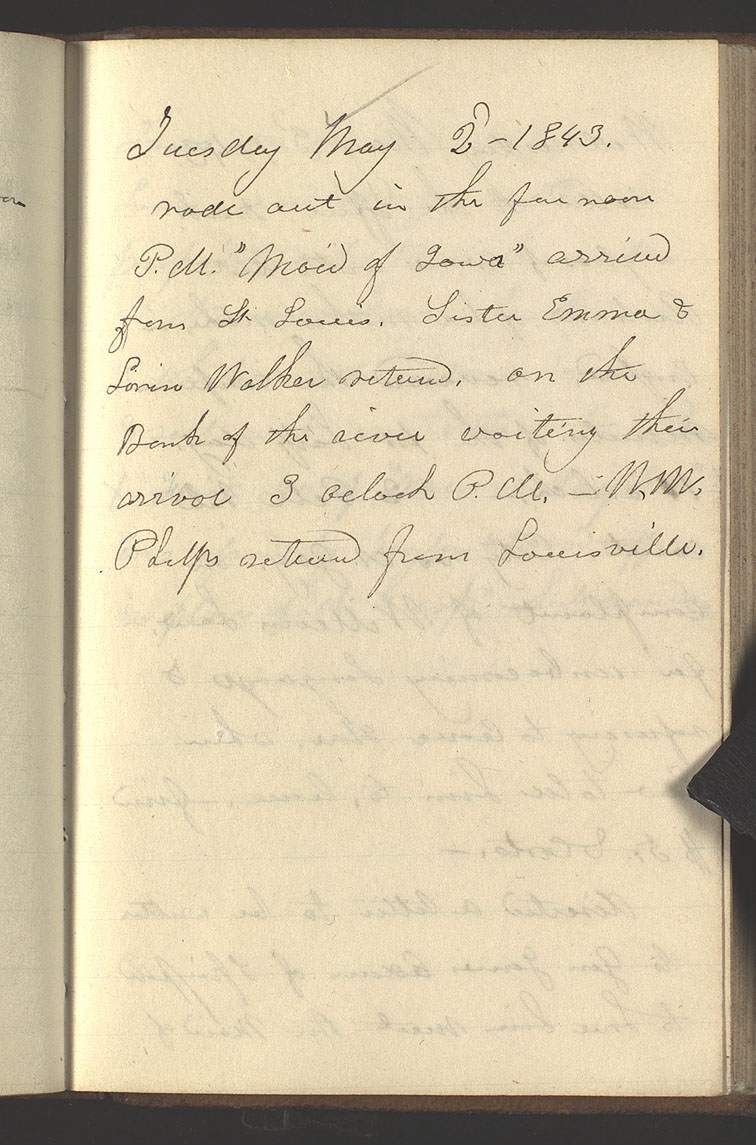 Tuesday May 2d - 1843.
rode out in the fore noon
P.M. "Maid of Iowa" arrived
from St. Louis. Sister Emma &
Lorin Walker returnd. on the
Bank of the river waiting their
arival 3 oclock P.M. — W. W.
Phelps returnd from Louisville.